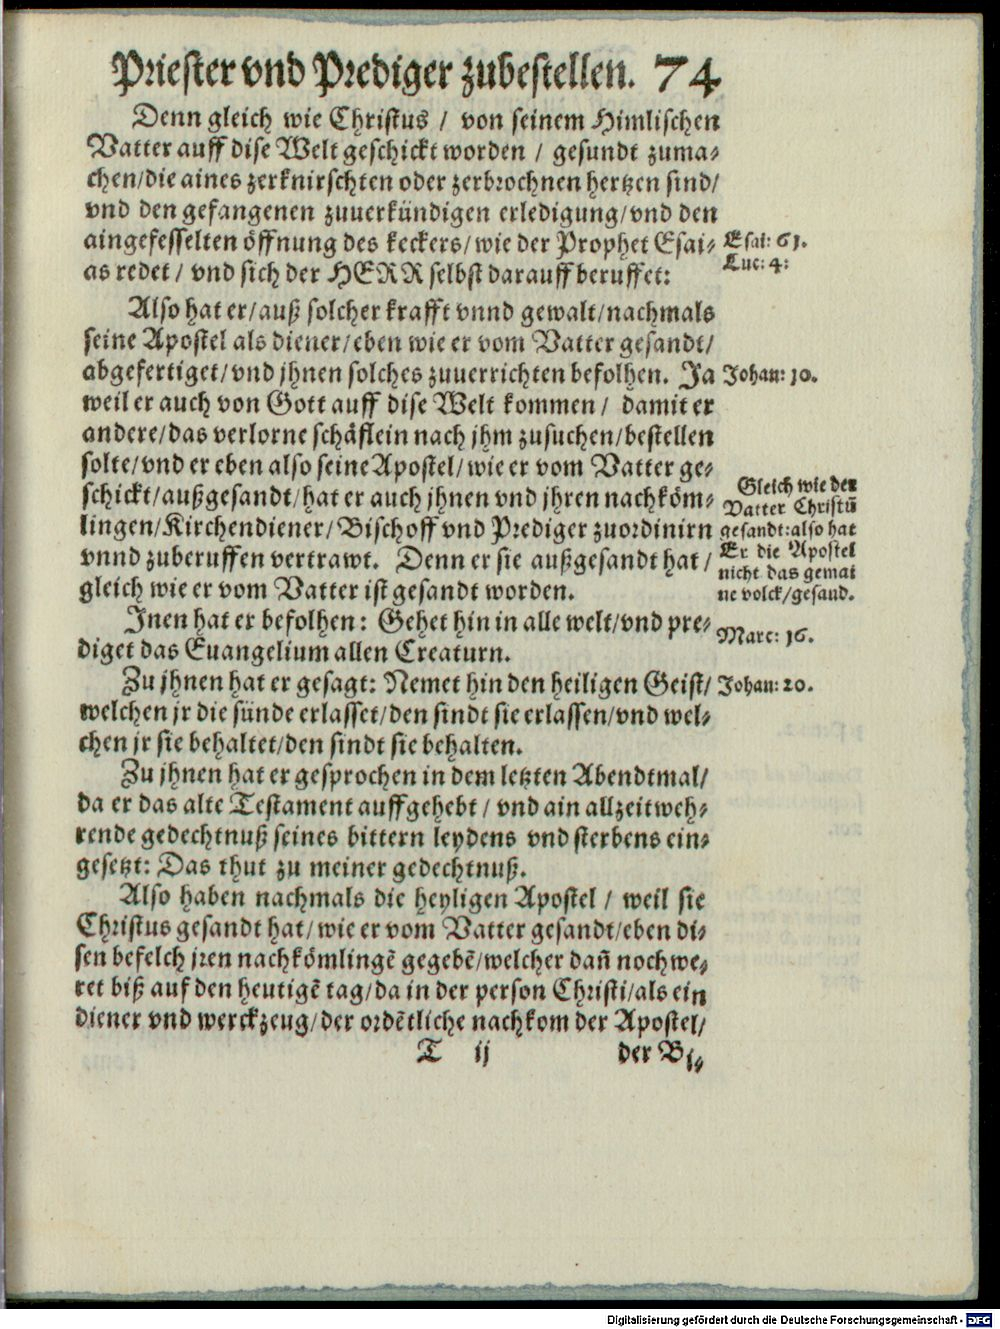 Priester vnd Prediger zubestellen. 74
Denn gleich wie Christus / von seinem Himlischen
Vatter auff dise Welt geschickt worden / gesundt zuma-
chen/die aines zerknirschten oder zerbrochnen hertzen sind/
vnd den gefangenen zuuerkündigen erledigung/vnd den
aingefesselten öffnung des keckers/wie der Prophet Esai-
as redet / vnd sich der HERR selbst darauff beruffet:
Esai: 61.
Luc: 4:
Also hat er/auß solcher krafft vnnd gewalt/nachmals
seine Apostel als diener/eben wie er vom Vatter gesandt/
abgefertiget/vnd jhnen solches zuuerrichten befolhen. Ja
Johan: 10.
weil er auch von Gott auff dise Welt kommen / damit er
andere/das verlorne schäflein nach jhm zusuchen/bestellen
solte/vnd er eben also seine Apostel/wie er vom Vatter ge-
schickt/außgesandt/hat er auch jhnen vnd jhren nachköm-
lingen/Kirchendiener/Bischoff vnd Prediger zuordinirn
vnnd zuberuffen vertrawt. Denn er sie außgesandt hat/
gleich wie er vom Vatter ist gesandt worden.
Gleich wie der
Vatter Christū
gesandt:also hat
Er die Apostel
nicht das gemai
ne volck/gesand.
Inen hat er befolhen: Gehet hin in alle welt/vnd pre-
diget das Euangelium allen Creaturn.
Marc: 16.
Zu jhnen hat er gesagt: Nemet hin den heiligen Geist/
Johan: 20.
welchen jr die sünde erlasset/den sindt sie erlassen/vnd wel-
chen jr sie behaltet/den sindt sie behalten.
Zu jhnen hat er gesprochen in dem letzten Abendtmal/
da er das alte Testament auffgehebt / vnd ain allzeitweh-
rende gedechtnuß seines bittern leydens vnd sterbens ein-
gesetzt: Das thut zu meiner gedechtnuß.
Also haben nachmals die heyligen Apostel / weil sie
Christus gesandt hat/wie er vom Vatter gesandt/eben di-
sen befelch jren nachkömlingē gegebē/welcher dañ noch we-
ret biß auf den heutigē tag/da in der person Christi/als ein
diener vnd werckzeug/der ordētliche nachkom der Apostel/
T ij
der Bi-
Digitalisierung gefördert durch die Deutsche Forschungsgemeinschaft - DFG